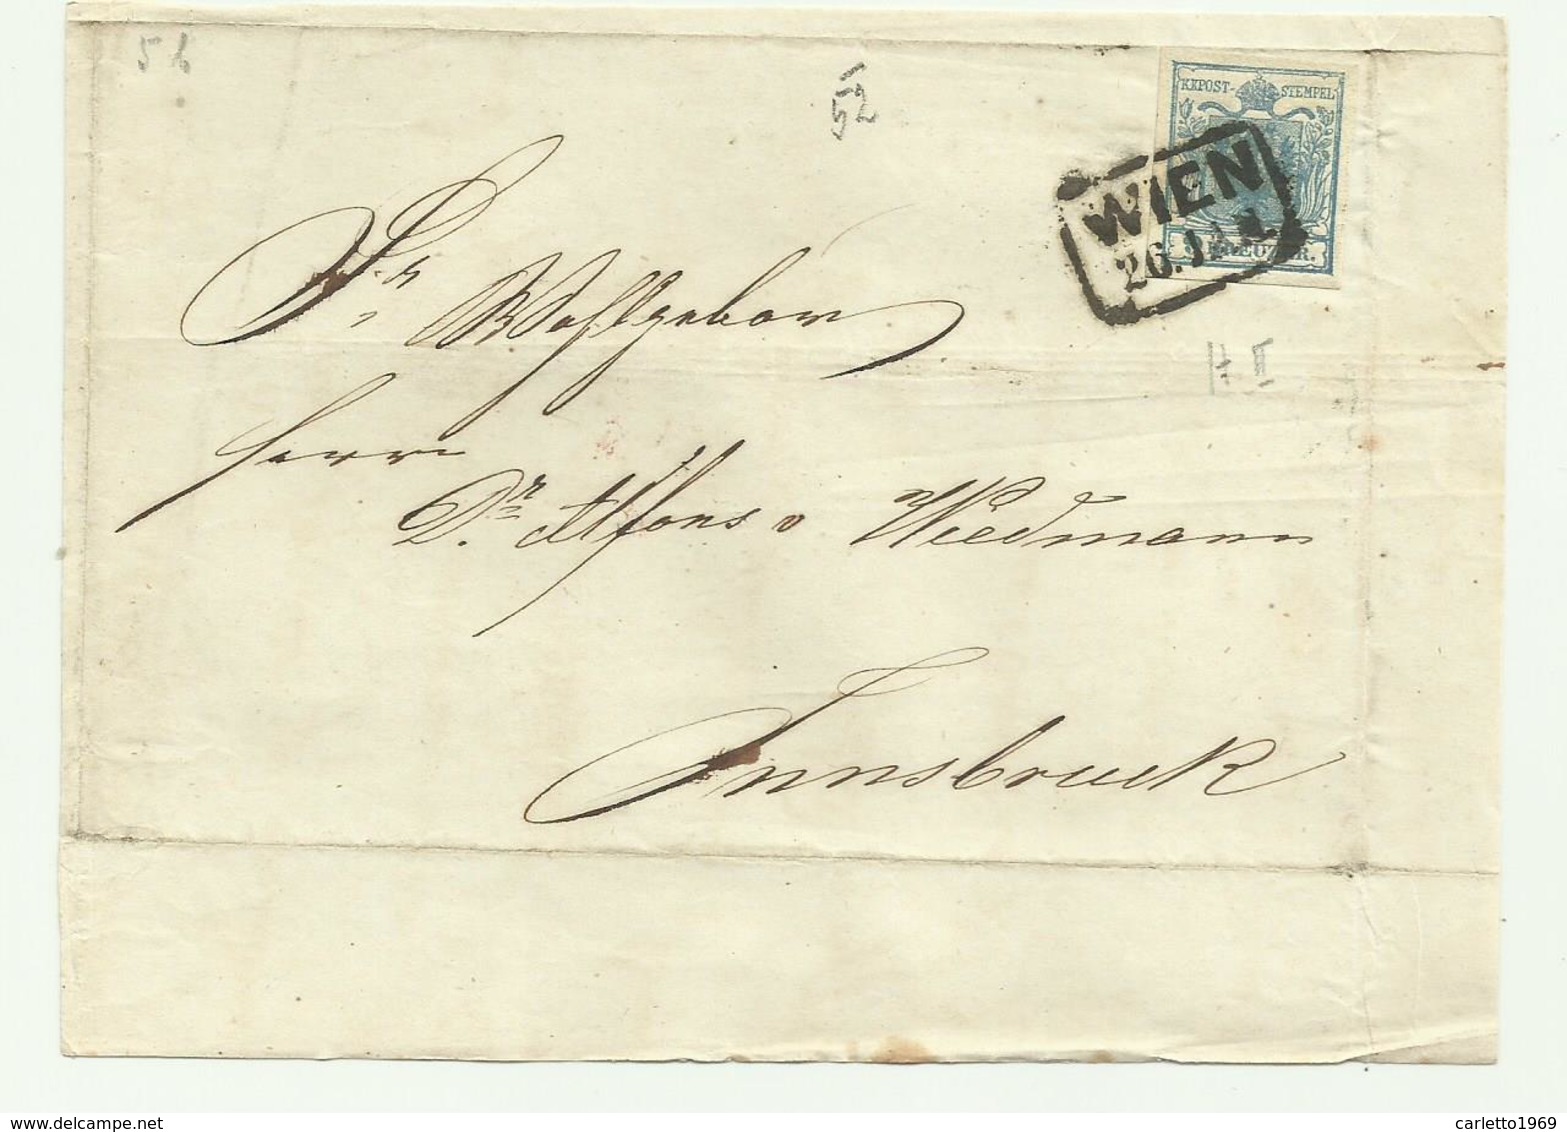 5 b
52
KKPOST-STEMPEL
WIEN
26. JAN.
9 KREUZER.
H. III
Sr Wohlgeborn
Herrn
Dr. Alfons v Wiedmann
Innsbruck
delcampe.net
carletto1969